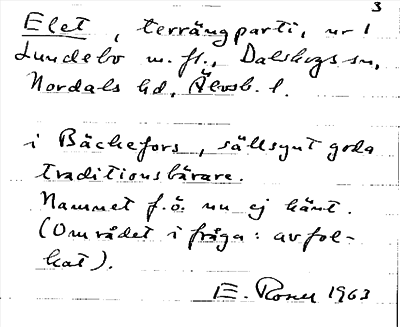 3
Elet, terrängparti, nr 1
Lundebo m.fl., Dalskogs sn,
Nordals hd, Älvsb. l.
i Bäckefors, sällsynt goda
traditionsbärare.
Namnet f.ö. nu ej känt.
(Området i fråga: avfol-
kat).
E. Rosen 1963